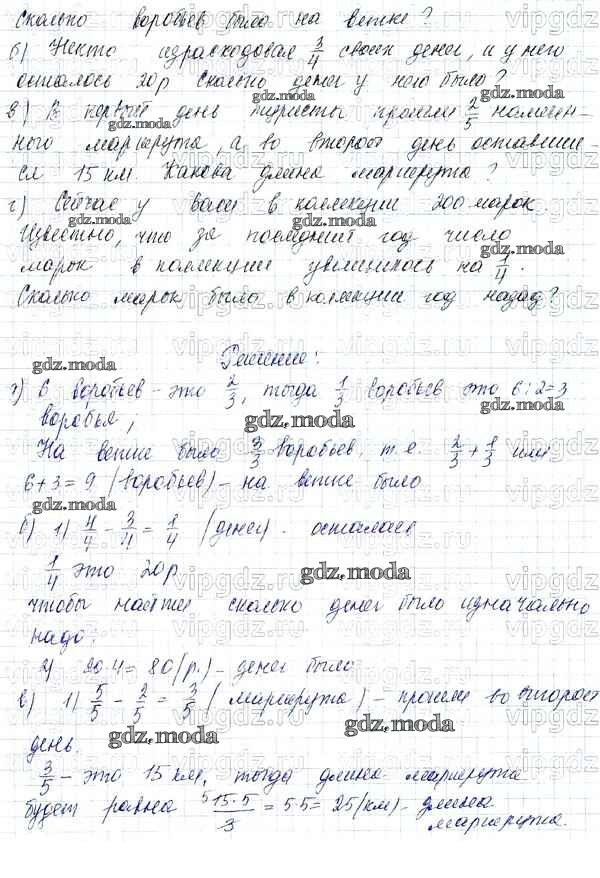 Сколько воробьев было на ветке?
б) Некто израсходовал 3/4 своих денег, и у него
осталось 20р. Сколько денег у него было?
в) В первый день туристы прошли 2/5 намечен-
ного маршрута, а во второй день оставшие-
ся 15 км. Какова длина маршрута?
г) Сейчас у Васи в коллекции 200 марок.
Известно, что за последний год число
марок в коллекции увеличилось на 1/4.
Сколько марок было в коллекции год назад?
Решение:
6 воробьев - это 2/3, тогда 1/3 воробьев это 6:2=3
воробья,
На ветке было 3/3 воробьев, т.е. 2/3 + 1/3 или
6+3=9 (воробьев) - на ветке было
б) 1) 4/4 - 3/4 = 1/4 (денег) - осталась
1/4 это 20р
чтобы найти сколько денег было изначально
надо:
2) 20·4=80(р.) - денег было
в) 1) 5/5 - 2/5 = 3/5 (маршрута) - прошли во второй
день.
3/5 - это 15 км, тогда длина маршрута
будет равна 15·5/3 = 5·5 = 25(км) - длина
маршрута.
gdz.moda
vipgdz.ru